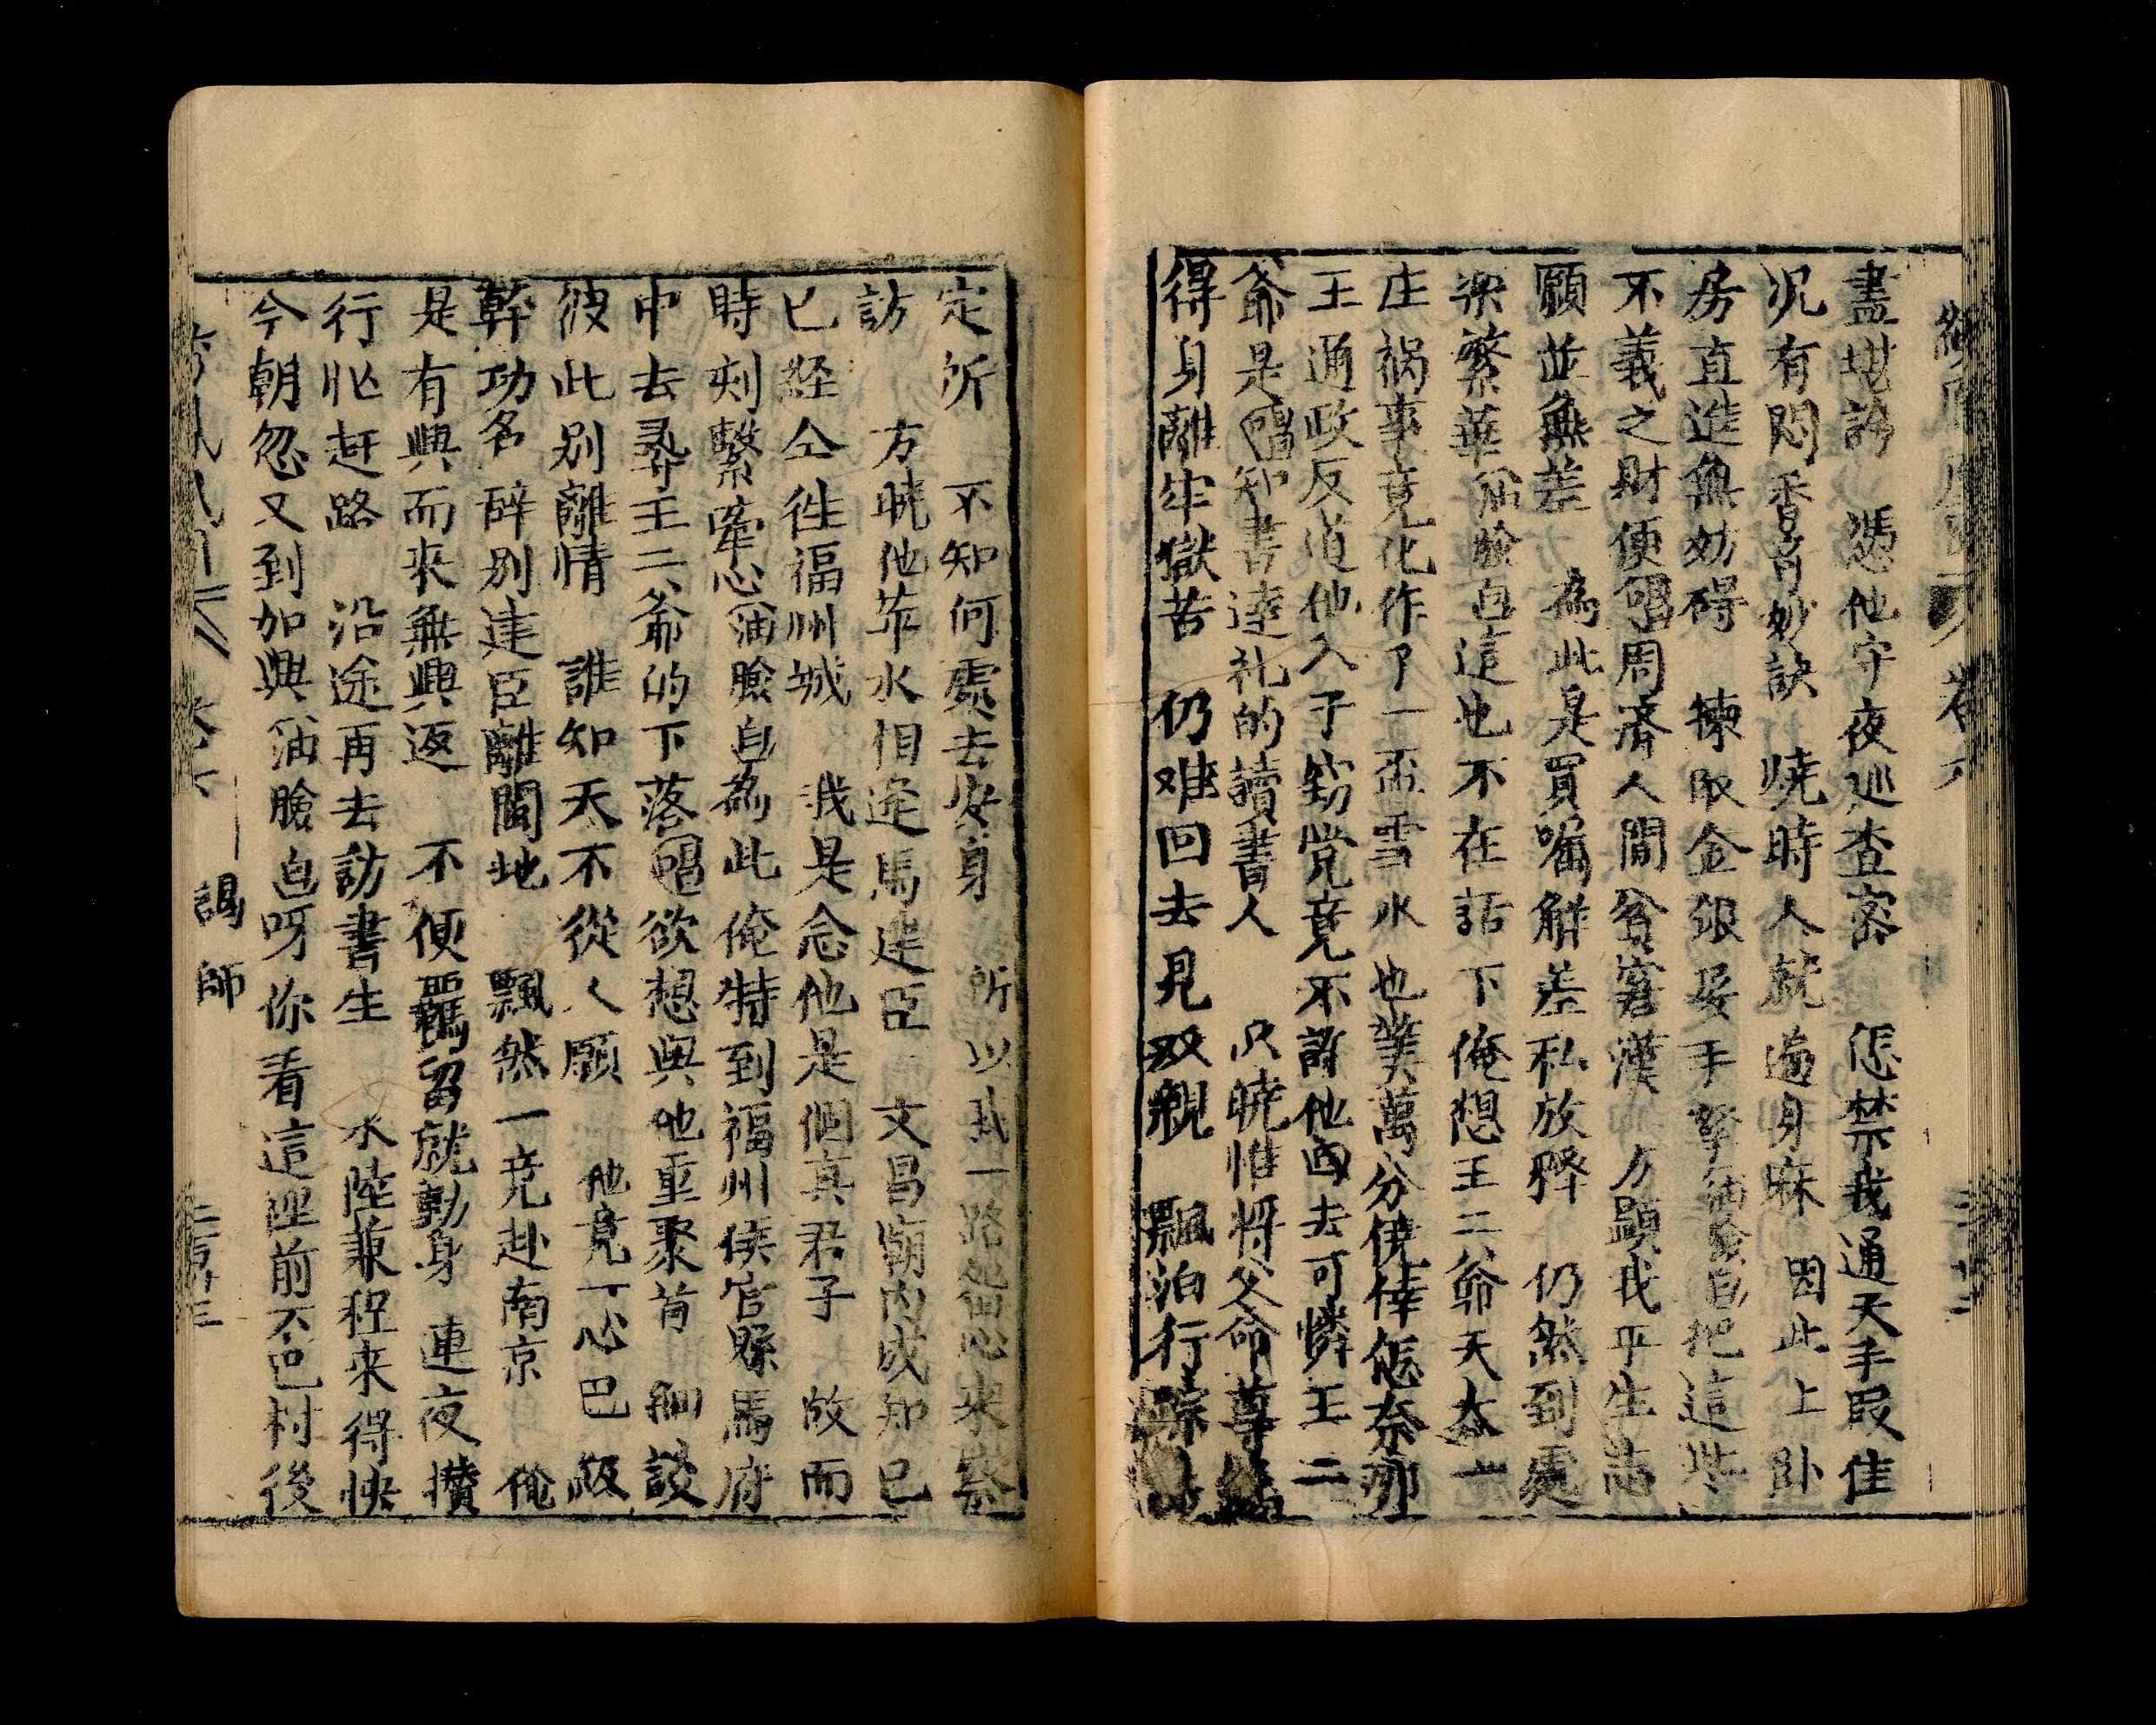 卷六
盡堪誇　憑他守夜巡查密　怎禁我通天手段佳
況有悶香奇妙訣　燒時人就遍身麻　因此上卧
房直進無妨碍　揀取金銀妥手拏油臉白把這些
不義之財便唱周濟人間貧窘漢　方顯我平生志
願並無差　為此是買囑解差私放釋　仍然到處
樂繁華油臉白這也不在話下俺想王二爺天大一
庄禍事竟化作了一盃雪水也算萬分僥倖怎奈那
王通政反道他入于窃党竟不許他回去可憐王二
爺是唱知書達礼的讀書人　只曉惟將父命尊
得身離牢獄苦　仍难回去見双親　飄泊行踪
定所　不知何處去安身　所以我一路留心來察
訪　方曉他萍水相逢馬建臣　文昌廟內成知己
已經仝往福州城　我是念他是個真君子　故而
時刻繫牽心油臉白為此俺特到福州侯官縣馬府
中去尋王二爺的下落唱欲想與他重聚首　細談
彼此别離情　誰知天不從人願　他竟一心巴級
幹功名　辞别建臣離閩地　飄然一竟赴南京　俺
是有興而來無興返　不便羈留就動身　連夜攢
行忙赶路　沿途再去訪書生　水陸兼程来得快
今朝忽又到加興油臉白呀你看這埕前不巴村後
謁師